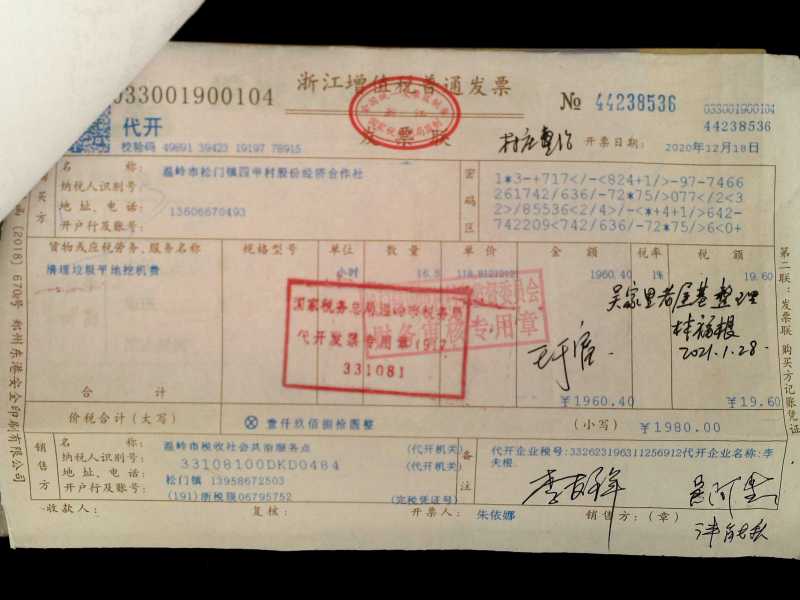 033001900104
浙江增值税普通发票
№ 44238536
033001900104
44238536
代开
发票联
校验码 49891 39423 19197 78915
开票日期: 2020年12月18日
购买方
名 称: 温岭市松门镇四甲村股份经济合作社
纳税人识别号:
地址、电话: 13606670493
开户行及账号:
密码区
1*3-+717</-<824+1/>-97-7466
261742/636/-72*75/>077</2<3
2>/85536<2/4>/-<*+4+1/>642-
742209<742/636/-72*75/>6<0+
货物或应税劳务、服务名称 规格型号 单位 数量 单价 金额 税率 税额
清理垃圾平地挖机费 小时 16.5 1960.40 1% 19.60
国家税务总局温岭市税务局
代开发票专用章
331081
财务审核专用章
吴家里老屋基整理
林福根
2021.1.28.
合 计 ¥1960.40 ¥19.60
价税合计(大写) ⊗ 壹仟玖佰捌拾圆整 (小写) ¥1980.00
销售方
名 称: 温岭市税收社会共治服务点 (代开机关)
纳税人识别号: 33108100DKD0484 (代开机关)
地址、电话: 松门镇 13958672503
开户行及账号: (191)浙税服06795752 (完税凭证号)
备注
代开企业税号:332623196311256912代开企业名称:李
夫根.
收款人: 复核: 开票人: 朱依娜 销售方:(章)
第二联:发票联 购买方记账凭证
(2018)670号 郑州东港安全印刷有限公司